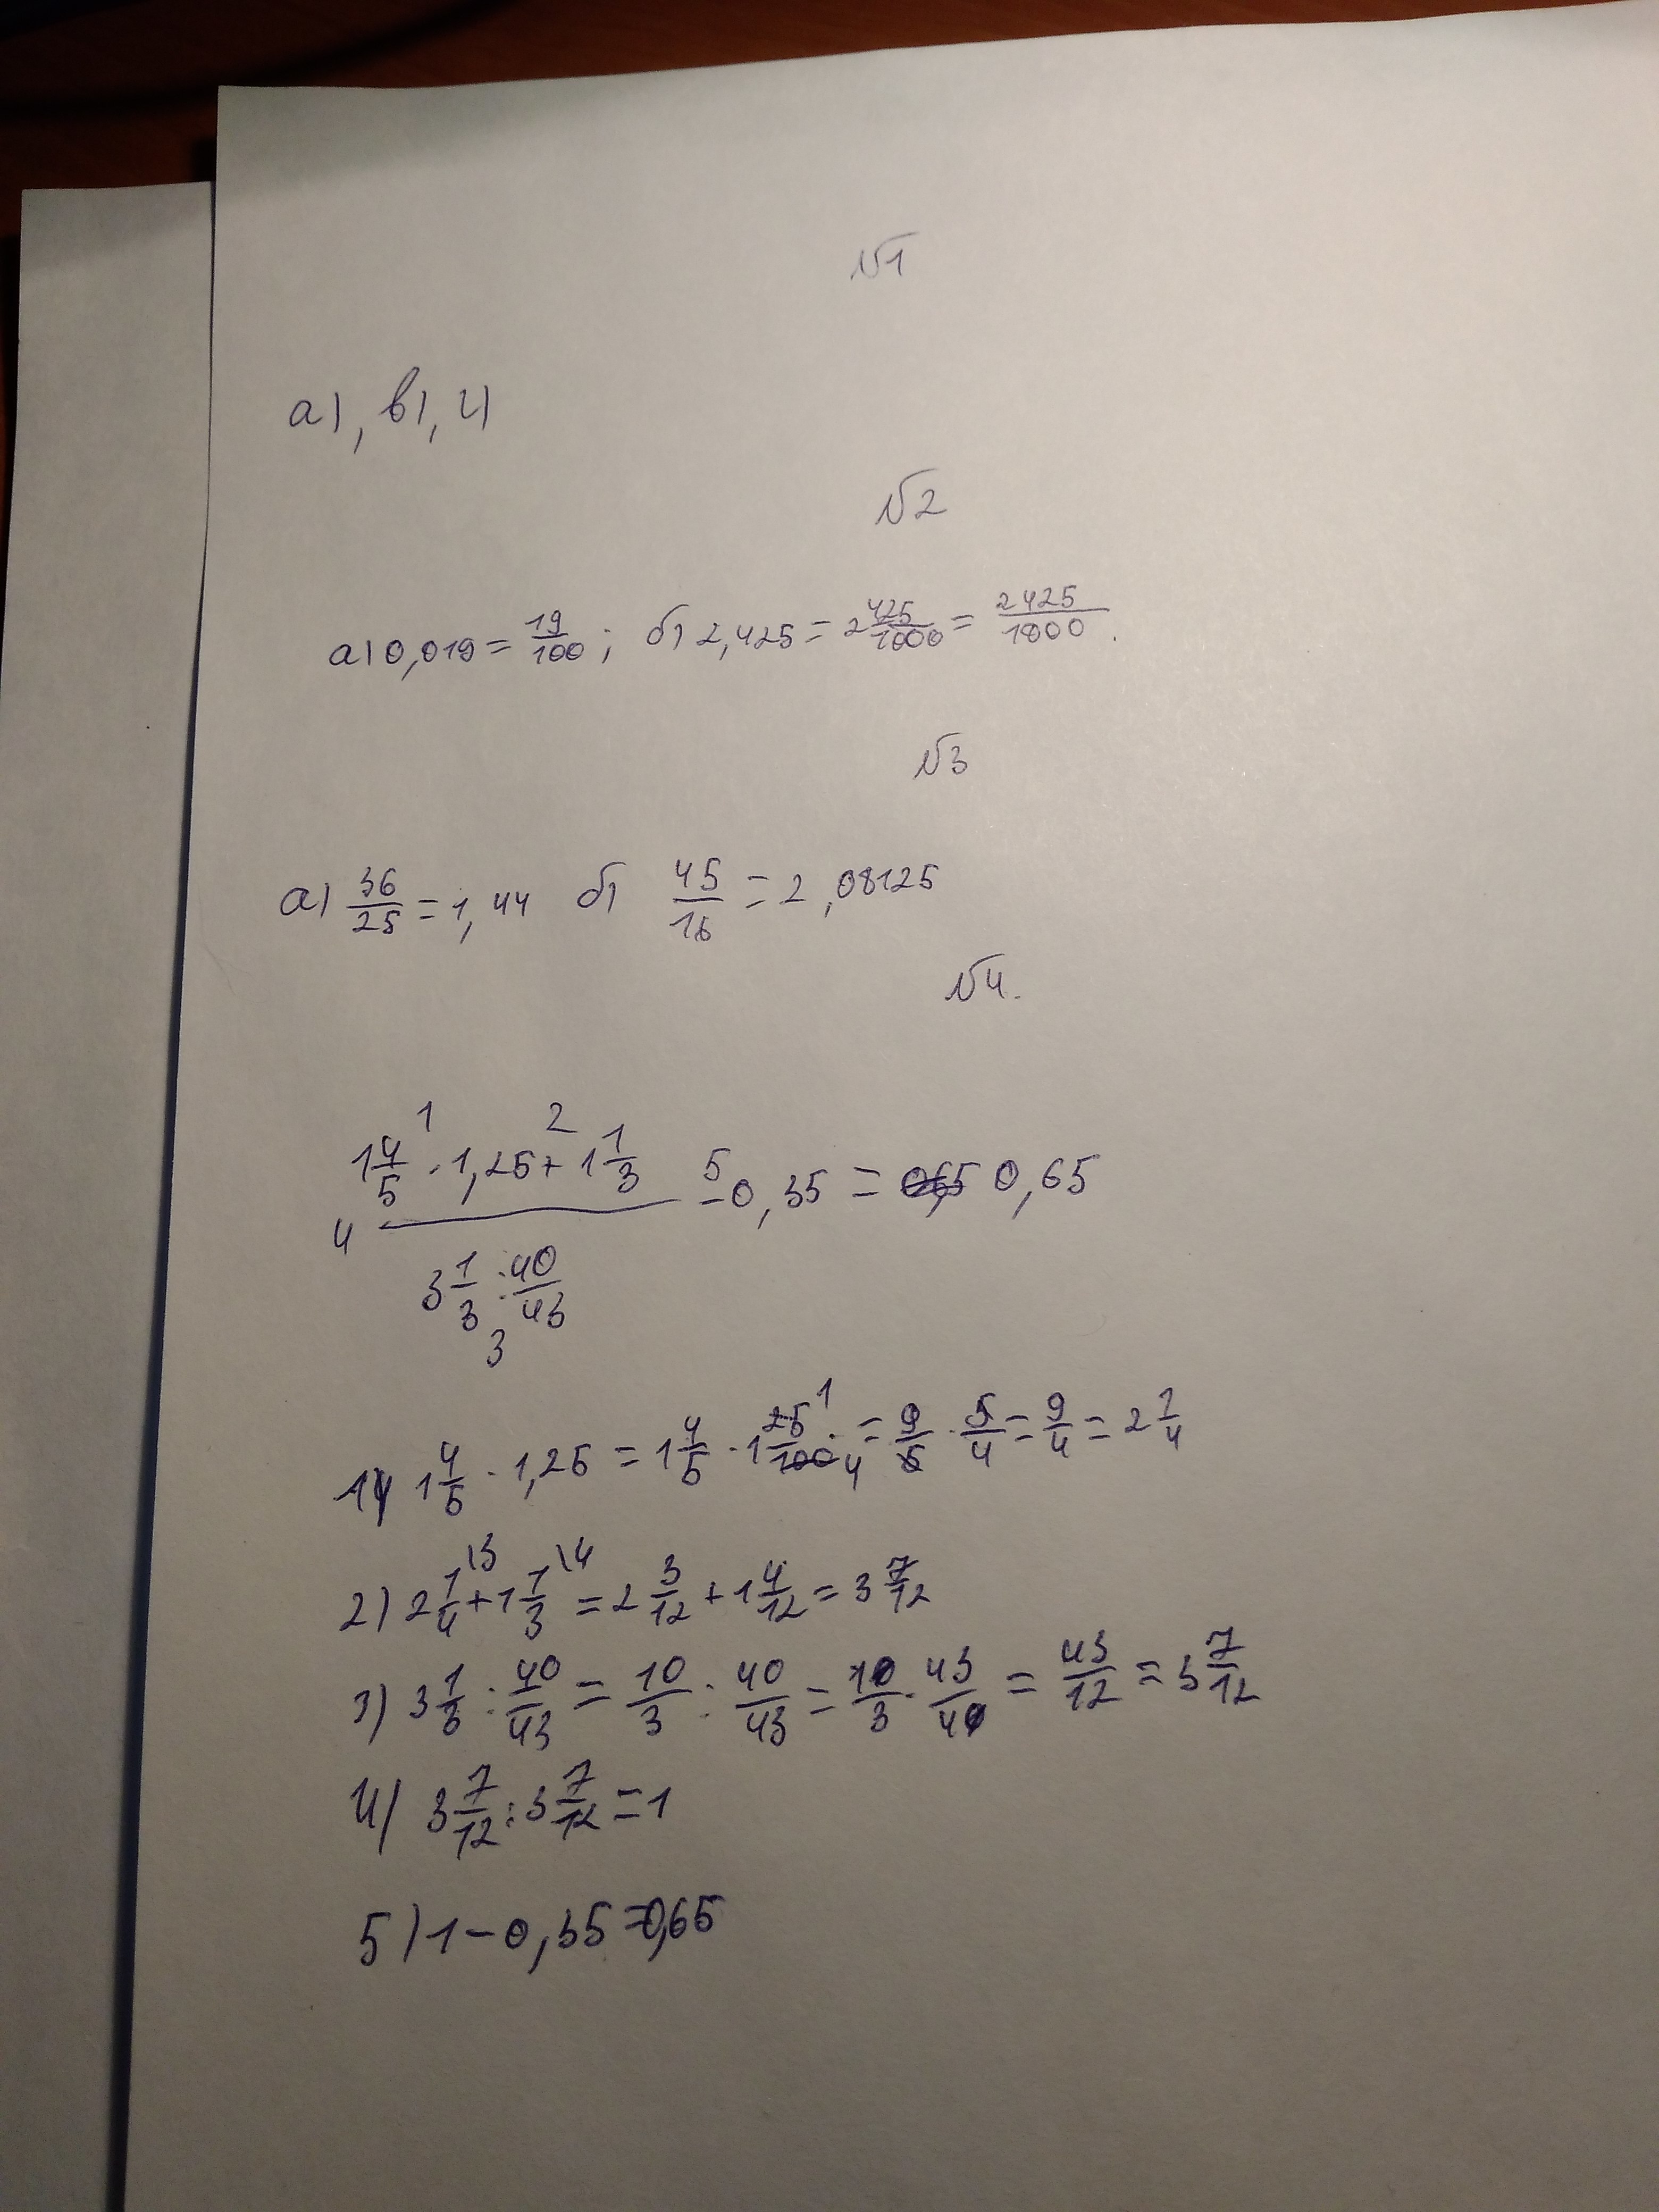 №1
а), в), г)
№2
а) 0,019 = 19/100 ; б) 2,425 = 2 425/1000 = 2425/1000 .
№3
а) 36/25 = 1,44 б) 45/16 = 2,08125
№4.
1 2
1 4/5 · 1,25 + 1 1/3 5
4 — - 0,35 = 0,65 0,65
3 1/3 : 40/43
3
1) 1 4/5 · 1,25 = 1 4/5 · 1 25/100 1 4 = 9/5 · 5/4 = 9/4 = 2 1/4
2) 2 1/4 \3 + 1 1/3 \4 = 2 3/12 + 1 4/12 = 3 7/12
3) 3 1/3 : 40/43 = 10/3 : 40/43 = 10/3 · 43/40 = 43/12 = 3 7/12
4) 3 7/12 : 3 7/12 = 1
5) 1 - 0,35 = 0,65